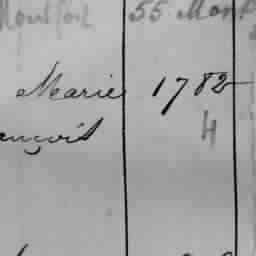 Montfort 55 Mont
Marie 1782
ançois 4